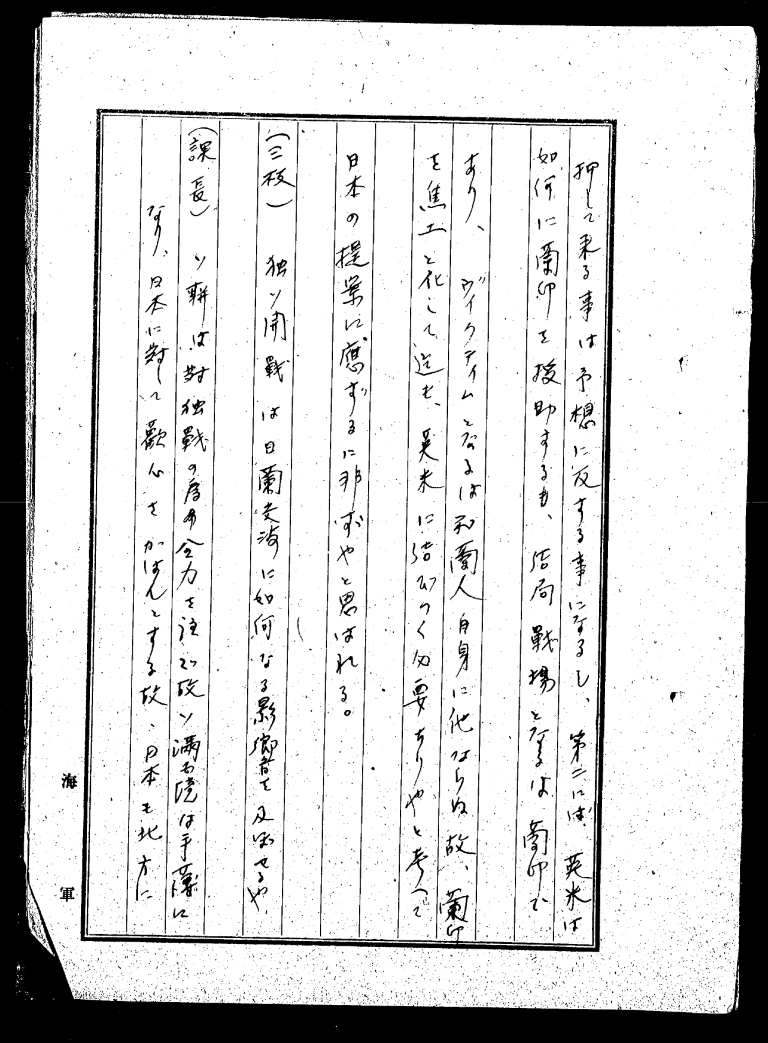 押して来る事は予想に反する事になるし、第二には、英米は
如何に蘭印を援助するも、結局戦場となるは蘭印で
あり、ヴイクテイムとなるは和蘭人自身に他ならぬ故、蘭印
を焦土と化して迄も、英米に結びつく必要ありやと考へて
日本の提案に應ずるに非ずやと思はれる。
(三枝) 独ソ開戦は日蘭交渉に如何なる影響を及ぼせるや、
(課長) ソ聯は対独戦の為全力を注ぐ故ソ満国境は手薄に
なり、日本に対して歡心をかはんとする故、日本も北方に
海軍